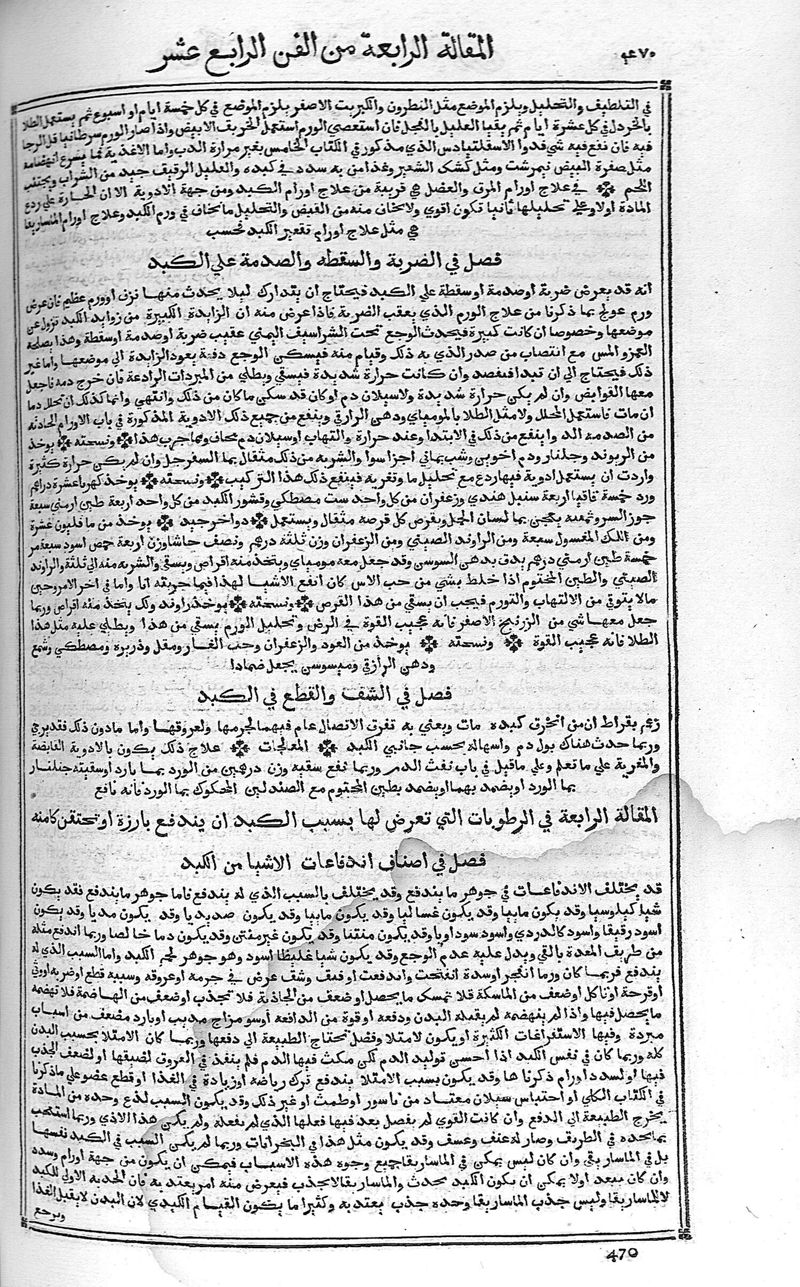 المقالة الرابعة من الفن الرابع عشر
٤٧٠
في التلطيف والتحليل ويلزم الموضع مثل النطرون والكبريت الاصفر يلزم الموضع في كل خمسة ايام او اسبوع ثم يستعمل الطلا
بالخردل في كل عشرة ايام ثم يقيا العليل بالفجل فان استعصي الورم استعمل الخربق الابيض واذا صار الورم سرطانيا قل الرجا
فيه فان نفع فيه شي فدوا الاسقلنبيادس الذي مذكور في الكتاب الخامس بغير مرارة الدب واما الاغذية فما يسرع انهضامه
مثل صفرة البيض نيمرشت ومثل كشك الشعير وغذا من به سدد في كبده والقليل الرقيق جيد من الشراب ويجتنب
اللحم في علاج اورام المرق والعضل هي قريبة من علاج اورام الكبد ومن جهة الادوية الا ان الجسارة علي ردع
المادة اولا وعلي تحليلها ثانيا تكون اقوي ولا يخاف منه من القبض والتحليل ما يخاف في ورم الكبد وعلاج اورام الماساريقا
هي مثل علاج اورام تقعير الكبد فحسب
فصل في الضربة والسقطه والصدمة علي الكبد
انه قد يعرض ضربة او صدمة او سقطة علي الكبد فيحتاج ان يتدارك ليلا يحدث منها نزف او ورم عظيم فان عرض
ورم عولج بما ذكرنا من علاج الورم الذي يعقب الضربة فاذا عرض منه ان الزايدة الكبيرة من زوايد الكبد تزول عن
موضعها وخصوصا ان كانت كبيرة فيحدث الوجع تحت الشراسيف اليمني عقيب ضربة او صدمة او سقطة وهذا يصلحه
الغمز والمس مع انتصاب من صدر الذي به ذلك وقيام منه فيسكن الوجع دفعة بعود الزايدة الي موضعها واما غير
ذلك فيحتاج الي ان تبدا فيفصد وان كانت حرارة شديدة فيسقي ويطلي من المبردات الرادعة فان خرج دمه فاجعل
معها القوابض وان لم يكن حرارة شديدة ولا سيلان دم او كان قد سكن ما كان من ذلك وانتهي وانما كذلك ان تحلل دما
ان مات فاستعمل المحلل ولا مثل الطلا بالموميای ودهن الرازقي وينفع من جميع ذلك الادوية المذكورة في باب الاورام الحادثة
من الصدمه الد وا ينفع من ذلك في الابتدا وعند حرارة والتهاب او سيلان دم يخاف ومما جرب هذا ونسخته يوخذ
من الربوند وجلنار ودم اخوين وشب يماني اجزا سوا والشربه من ذلك مثقال بما السفرجل وان لم يكن حرارة كثيرة
واردت ان يستعمل ادوية فيها ردع مع تحليل ما وتغريه فينفع ذلك هذا التركيب ونسخته يوخذ كهربا عشرة دراهم
ورد خمسة تاقيا اربعة سنبل هندي وزعفران من كل واحد ست مصطكي وقشور الكبد من كل واحد اربعة طين ارمني سبعة
جوز السرو ثمنيه يعجن بما لسان الحمل ويقرص كل قرصه مثقال ويستعمل دوا خر جيد يوخذ من ما فليون عشرة
ومن اللك المغسول سبعة ومن الراوند الصيني ومن الزعفران وزن ثلثة درهم ونصف حاشا وزن اربعة حمص اسود سبعة مر
خمسة طين ارمني درهم يدق بدهن السوسن وقد جعل معه موميای ويتخذ منه اقراص ويسقي والشربه منه الي ثلثة والراوند
الصيني والطين المختوم اذا خلط بشي من حب الاس كان انفع الاشيا لهذا فيما جربته انا واما في اخر الامر وحين
ما لا يتوقي من الالتهاب والتورم فيجب ان يسقي من هذا القرص ونسخته يوخذ زراوند ولك يتخذ منه اقراص وربما
جعل معها شي من الزرنيخ الاصفر فانه عجيب القوة في الرض وتحليل الورم يسقي من هذا ويطلي عليه مثل هذا
الطلا فانه عجيب القوة ونسخته يوخذ من العود والزعفران وحب الغار ومقل وذريره ومصطكي وشمع
ودهن الرازقي وميسوسن يجعل ضمادا
فصل في الشق والقطع في الكبد
زعم بقراط ان من انخرق كبده مات ويعني به تفرق الاتصال عام فيهما لجرمها ولعروقها واما ما دون ذلك فقد يرجي
وربما حدث هناك بول دم واسهاله بحسب جانبي الكبد المعالجات علاج ذلك يكون بالادوية القابضة
والمغرية علي ما تعلم وعلي ما قيل في باب نفث الدم وربما نفع سقيه وزن درهمين من الورد بما بارد او سقيته جلنار
بما الورد او يضمد بهما او يضمد بطين المختوم مع الصندلين المحكوك بما الورد فانه نافع
المقالة الرابعة في الرطوبات التي تعرض لها بسبب الكبد ان يندفع بارزة او تحتقن كامنه
فصل في اصناف اندفاعات الاشيا من الكبد
قد يختلف الاندفاعات في جوهر ما يندفع وقد يختلف بالسبب الذي له يندفع فاما جوهر ما يندفع فقد يكون
شيا كيلوسيا وقد يكون ماييا وقد يكون غساليا وقد يكون ماييا وقد يكون صديديا وقد يكون مديا وقد يكون
اسود رقيقا واسود كالدردي واسود سوداويا وقد يكون منتنا وقد يكون غير منتن وقد يكون دما خالصا وربما اندفع مثله
من طريف المعدة بالقي ويدل عليه عدم الوجع وقد يكون شيا غليظا اسود وهو جوهر لحم الكبد واما السبب الذي له
يندفع فربما كان ورما انفجر او سدة انفتحت واندفعت او فتق وشق عرض في جرمه او عروقه وسببه قطع او ضربه او وثي
او قرحة او تاكل او ضعف من الماسكة فلا تمسك ما يحصل او ضعف من الجاذبة فلا تجذب او ضعف من الهاضمة فلا تهضم
ما يحصل فيها واذا لم ينهضم لم يقبله البدن ودفعه او قوة من الدافعه او سو مزاج مذيب او بارد مضعف من اسباب
مبردة وفيها الاستفراغات الكثيرة او يكون لامتلا وفضل تحتاج الطبيعة الي دفعها وربما كان الامتلا بحسب البدن
كله وربما كان في نفس الكبد اذا احسن توليد الدم لكن مكث فيها الدم فلم ينفذ في العروق لضيقها او لضعف الجذب
فيها او لسدد او اورام ذكرنا ها وقد يكون بسبب الامتلا يندفع ترك رياضه او زيادة في الغذا او قطع عضو علي ما ذكرنا
في الكتاب الكلي او احتباس سيلان معتاد من باسور او طمث او غير ذلك وقد يكون السبب لذع وحده من المادة
يخرج الطبيعة الي الدفع وان كانت القوي لم يفصل بعد فيها فعلها الذي لم يفعله ولم يكن هذا الاذي وربما استصحب
بما يجده في الطريف وصار له عنف وعسف وقد يكون مثل هذا في البحرانات وربما لم يكن السبب في الكبد نفسها
بل في الماساريقي وان كان ليس يمكن في الماساريقا جميع وجوه هذه الاسباب فيمكن ان يكون من جهة اورام وسدد
وان كان يبعد او لا يمكن ان يكون الكبد يجذب والماساريقا لا يجذب فيعرض منه امر يعتد به فان الجذب الاولي للكبد
لا للماساريقا وليس جذب الماساريقا وحده جذب يعتد به وكثيرا ما يكون القيام الكبدي لان البدن لا يقبل الغذا
ويرجع
470